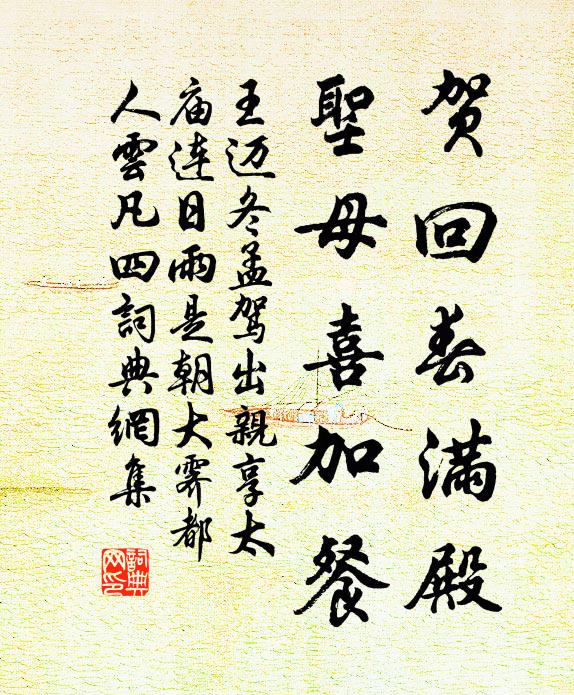 贺回春满殿
聖母喜加餐
王迈冬孟驾出親享太
庙连日雨是朝大霁都
人雲凡四詞典網集
詞典
网印